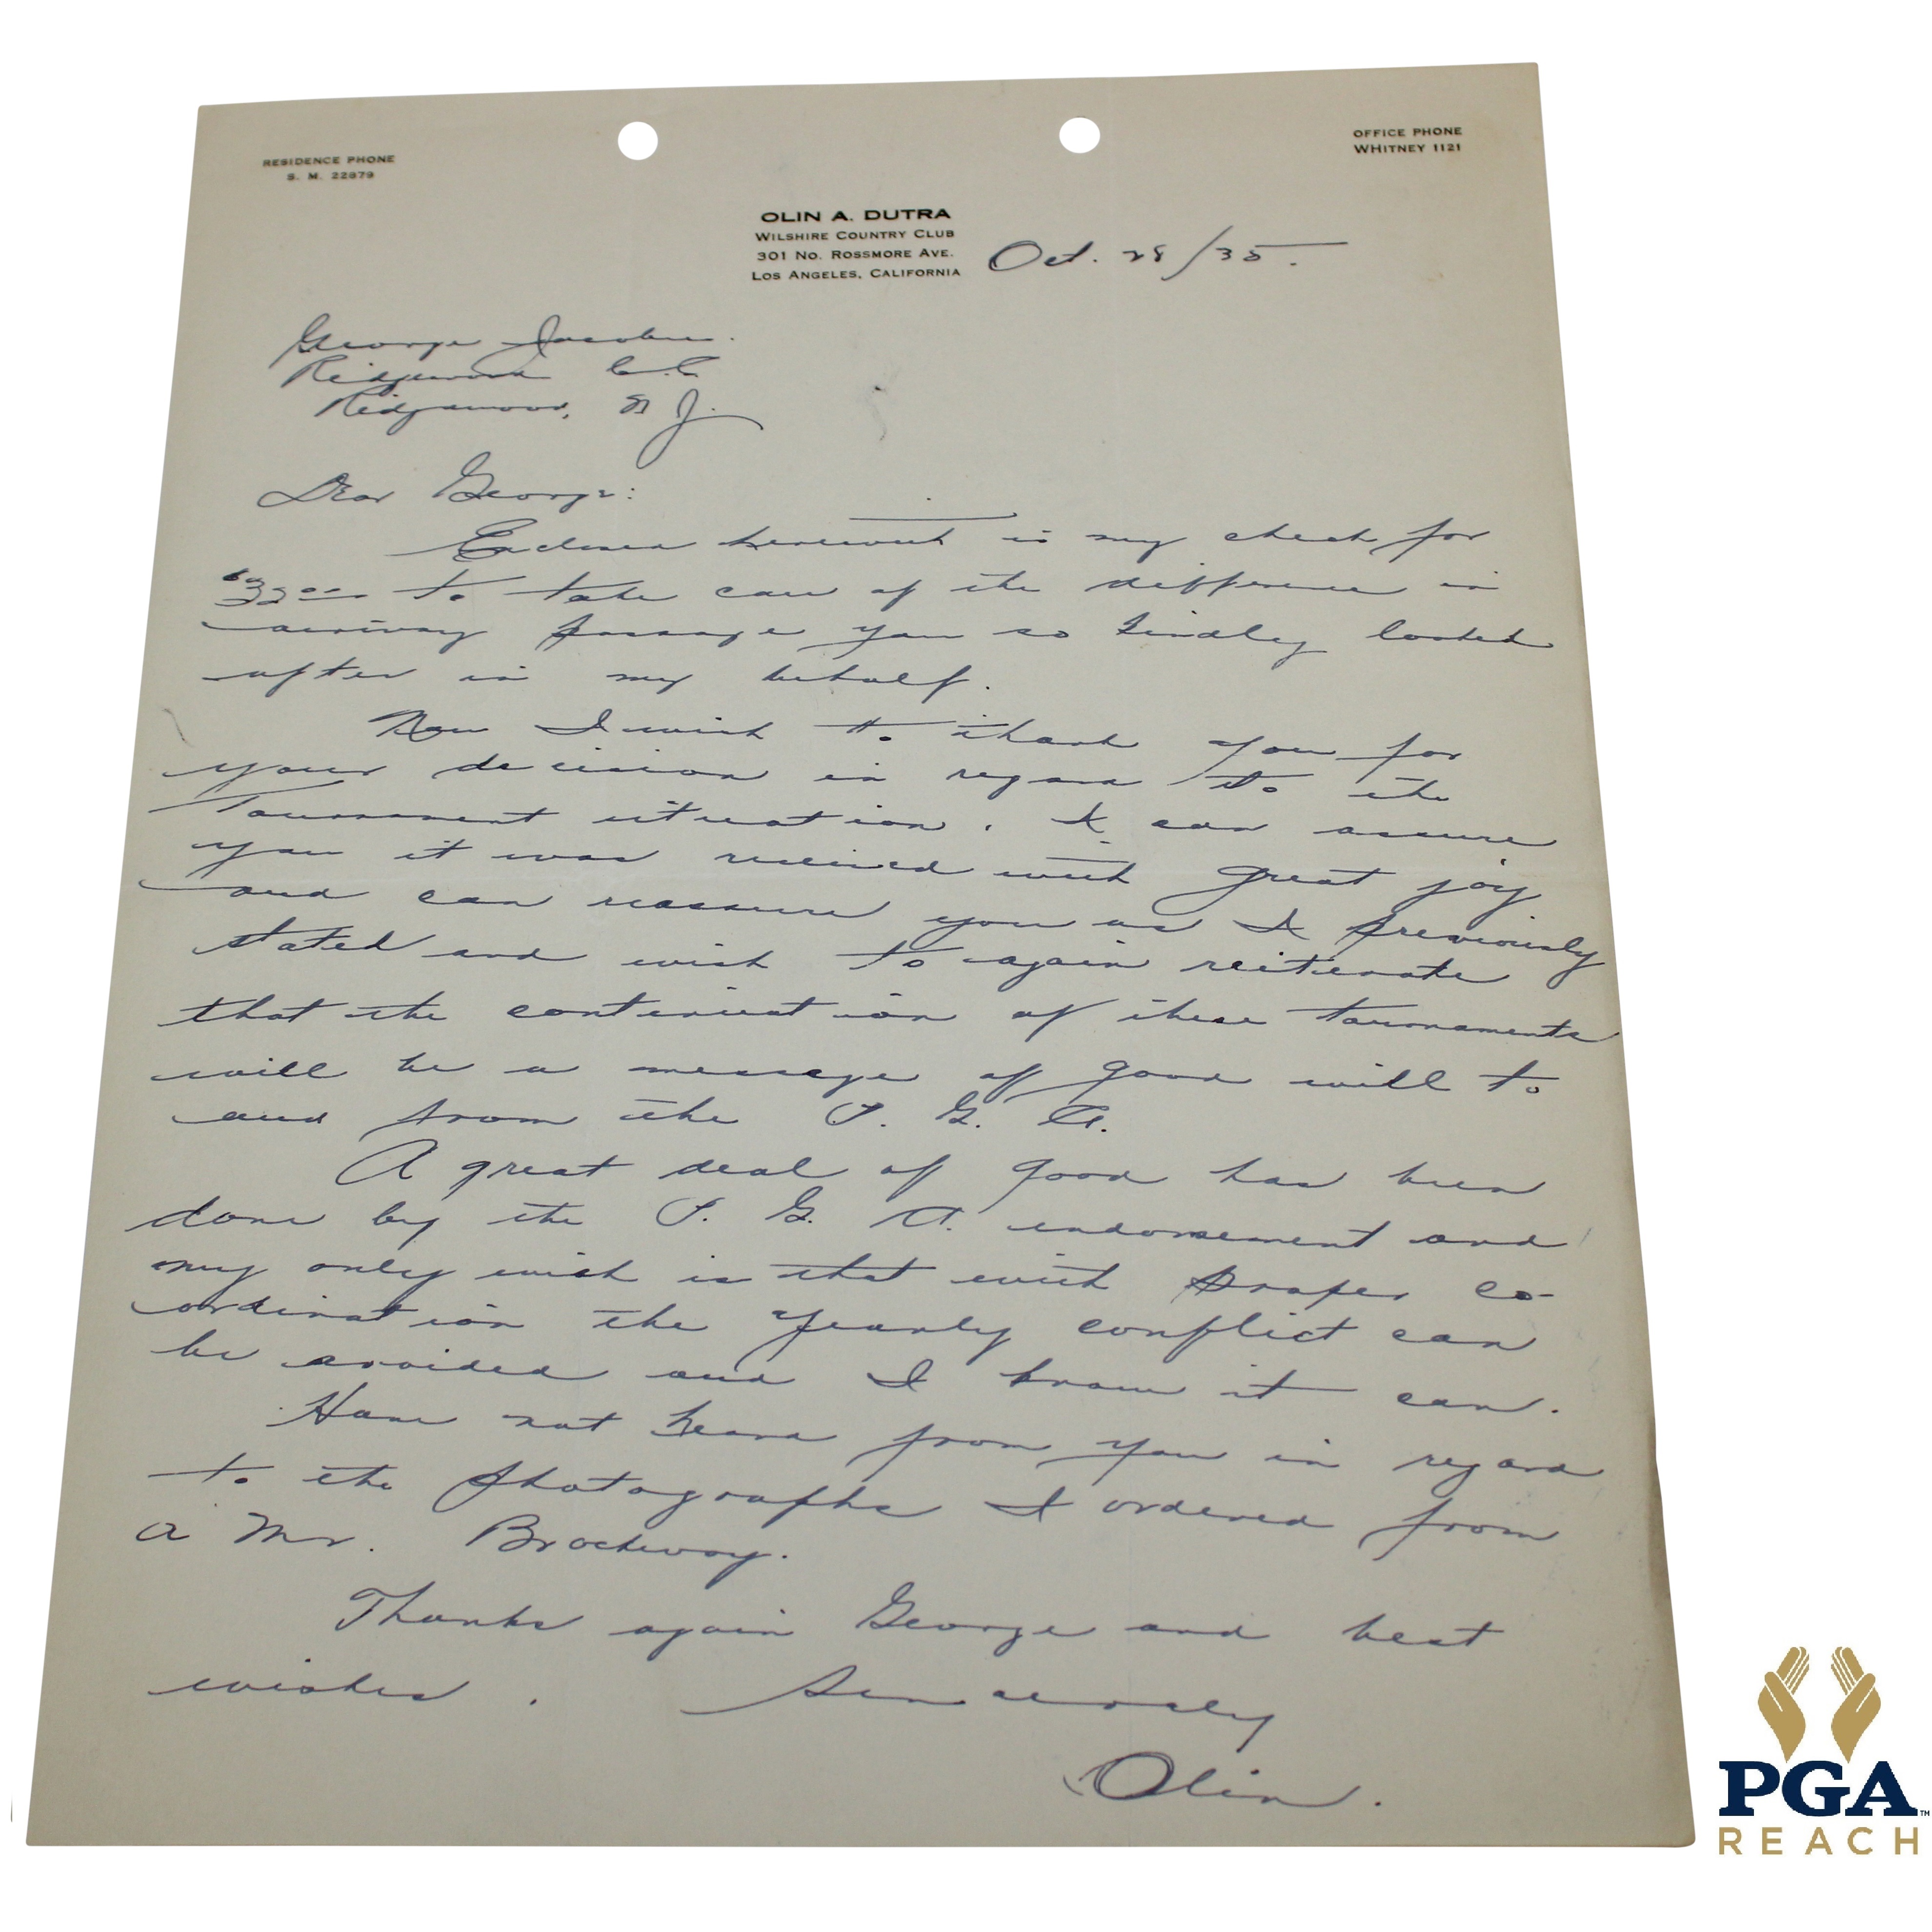 RESIDENCE PHONE
S. M. 22879
OFFICE PHONE
WHITNEY 1121
OLIN A. DUTRA
WILSHIRE COUNTRY CLUB
301 NO. ROSSMORE AVE.
LOS ANGELES, CALIFORNIA
Oct. 28/35.
George Jacobus.
Ridgewood C.C.
Ridgewood, N J.
Dear George:
Enclosed herewith is my check for
to take care of the difference in
passage you so kindly looked
after in my behalf.
Now I wish to thank you for
your decision in regard to the
Tournament situation. I can assure
you it was received with great joy
and can reassure you as I previously
stated and wish to again reiterate
that the continuation of these tournaments
will be a message of good will to
and from the P. G. A.
A great deal of good has been
done by the P. G. A. endorsement and
my only wish is that with proper co-
ordination the yearly conflict can
be avoided and I know it can.
Have not heard from you in regard
to the photographs I ordered from
a Mr. Brockway.
Thanks again George and best
wishes. Sincerely
Olin.
PGA TM
REACH